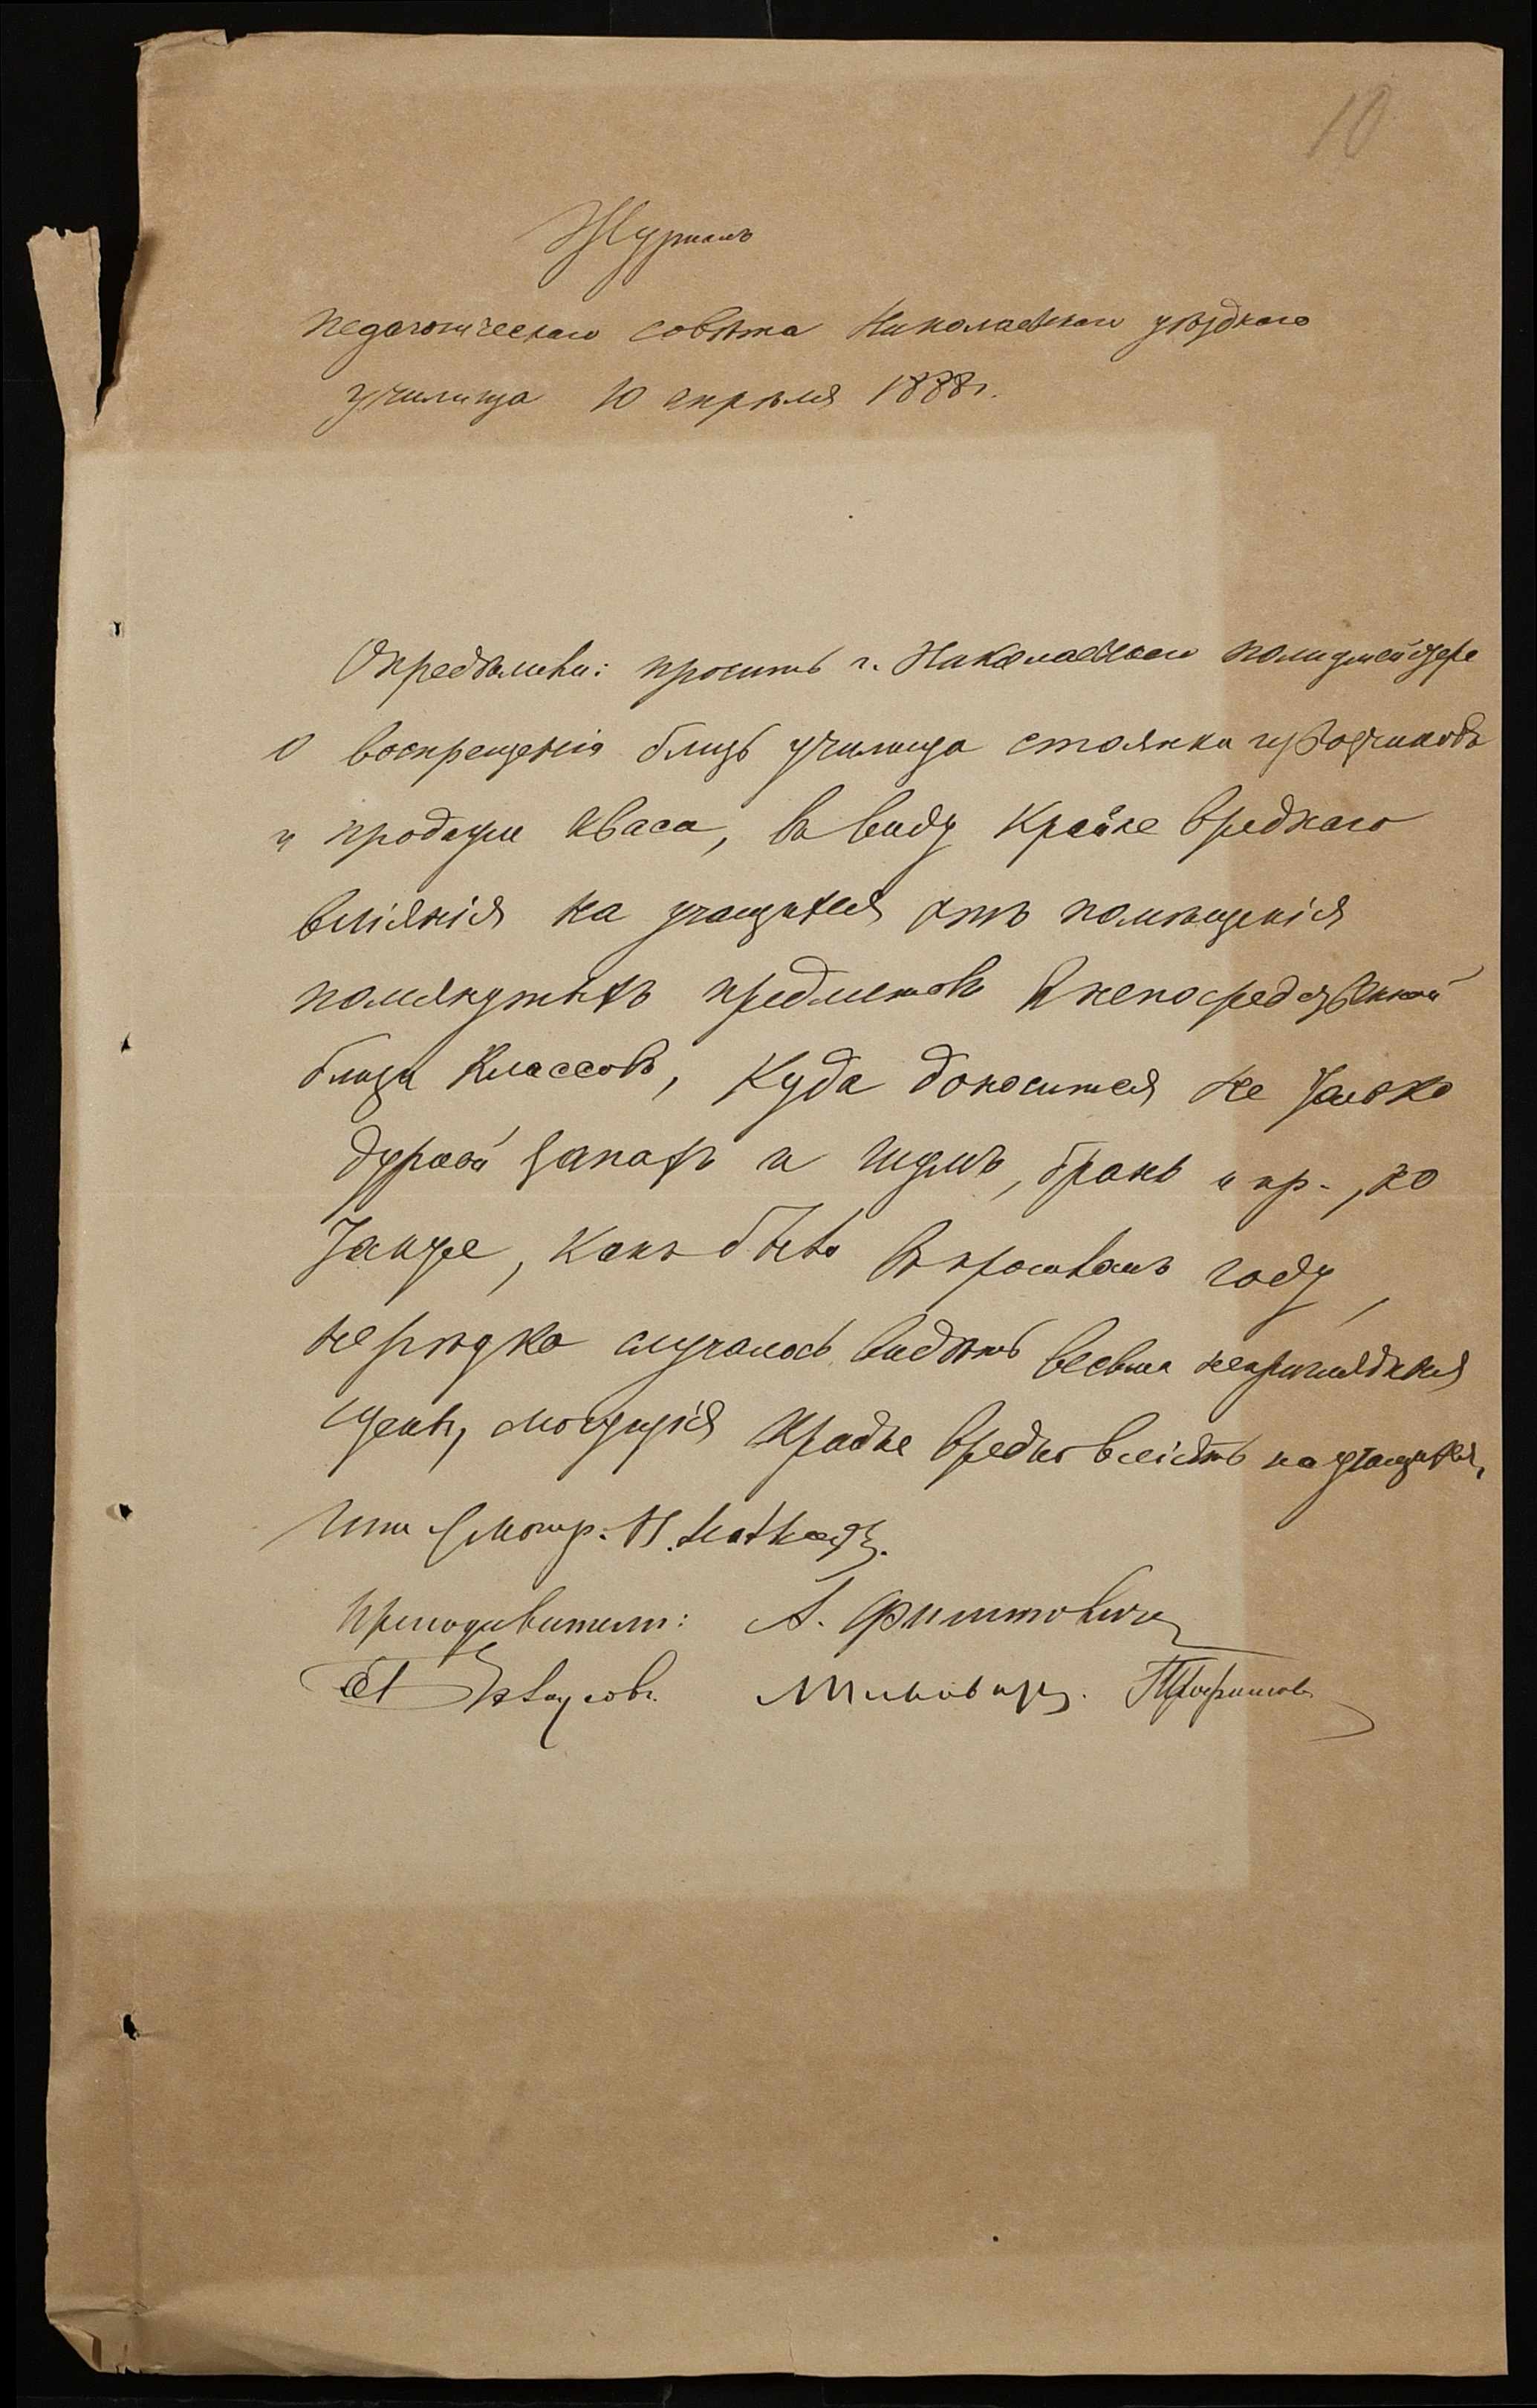 10
Журналъ
педагогическаго совѣта Николаевскаго уѣзднаго
училища 10 апрѣля 1888 г.
Опредѣлили: просить г. Николаевскаго полицмейстера
о воспрещенія близь училища стоянки извозчиковъ
и продажи кваса, въ виду крайне вреднаго
вліянія на учащихся отъ помѣщенія
помянутыхъ предметовъ въ непосредственной
близи классовъ, куда доносится не только
дурной запахъ и шумъ, брань и пр., но
также, какъ было въ прошломъ году,
нерѣдко случалось видѣть весьма неприглядныя
сцены, могущія крайне вредно вліять на учащихся.
Шт. Смотр. Н.
Преподаватели: А.